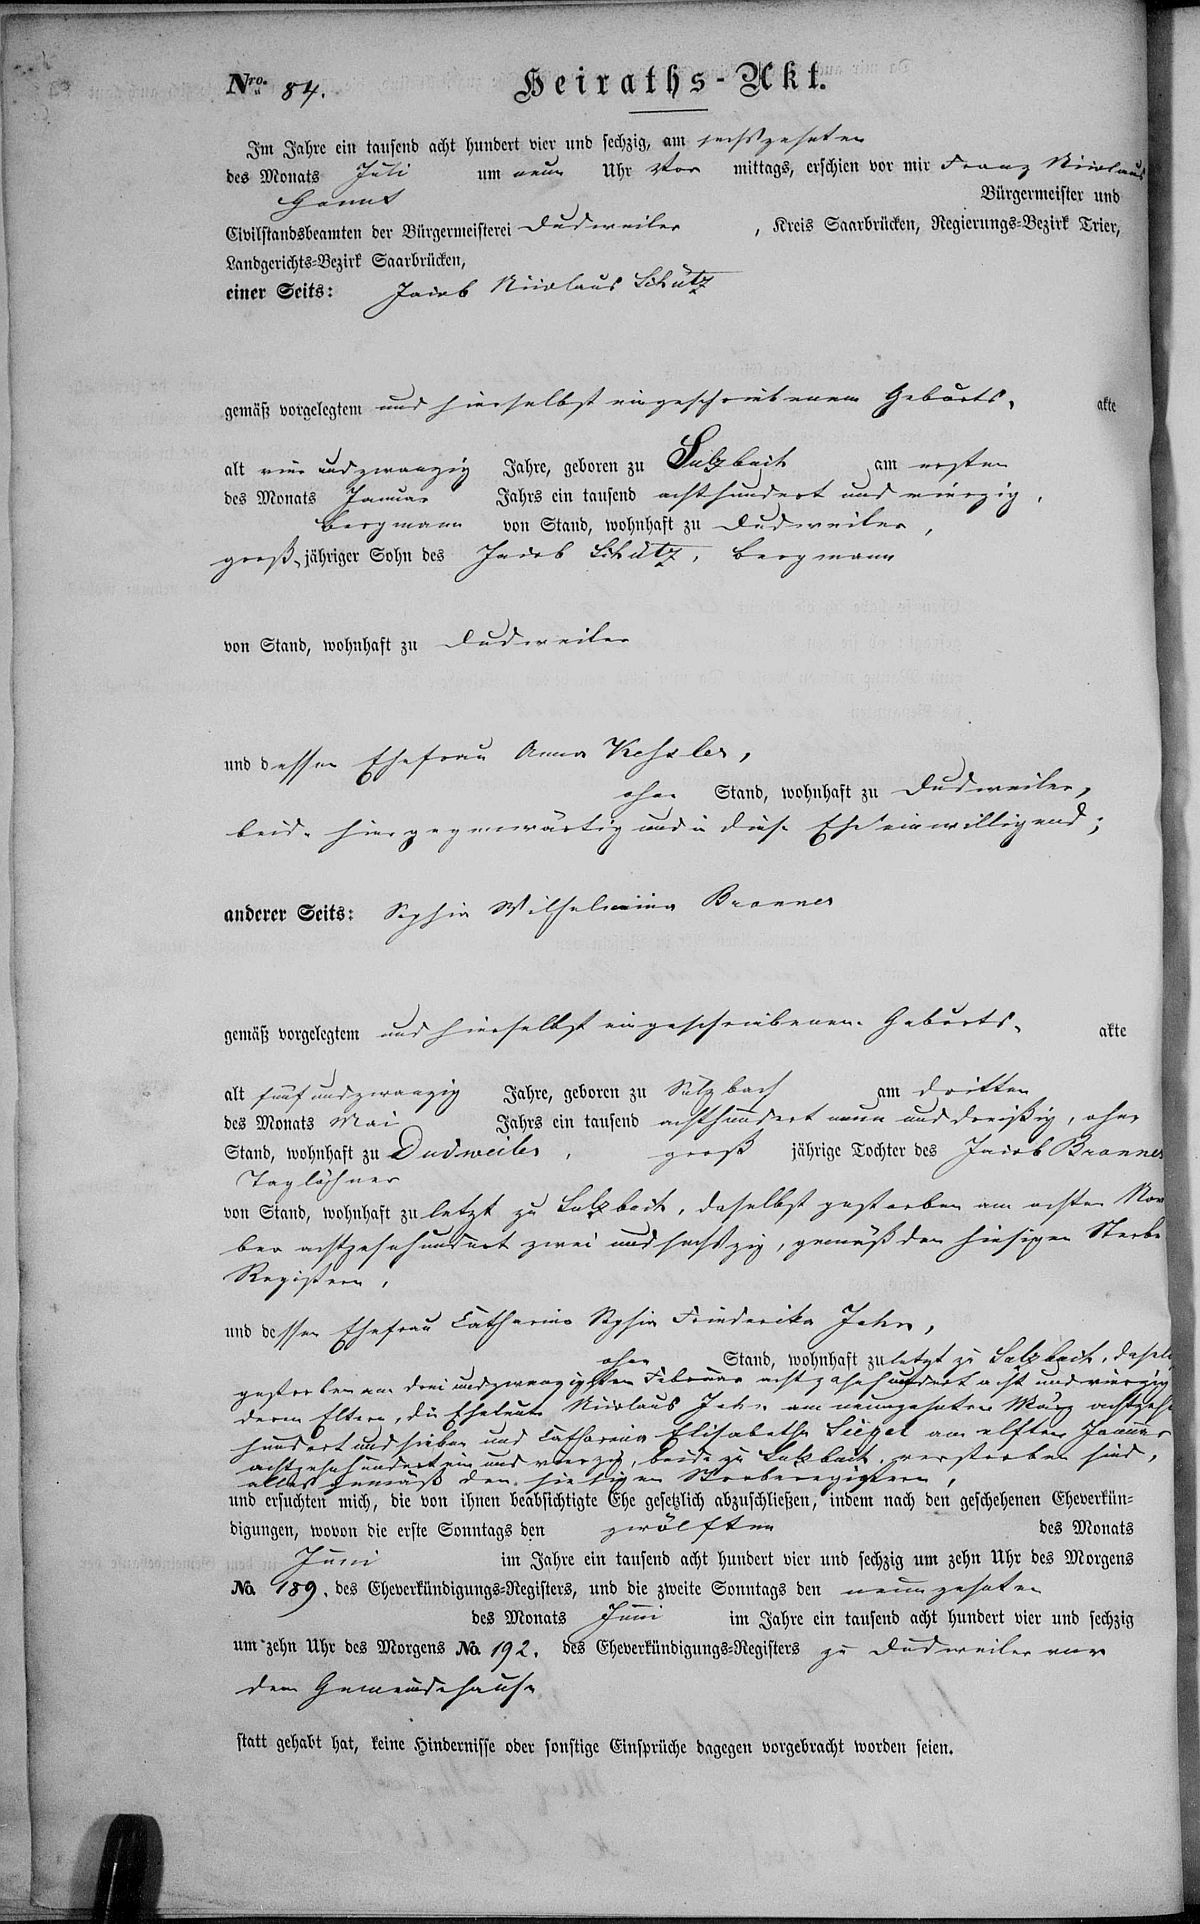 Nro. 84. Heiraths-Akt.
Im Jahre ein tausend acht hundert vier und sechzig, am sechszehnten
des Monats Juli um neun Uhr Vor mittags, erschien vor mir Franz Nicolaus
Bürgermeister und
Civilstandsbeamten der Bürgermeisterei Dudweiler, Kreis Saarbrücken, Regierungs-Bezirk Trier,
Landgerichts-Bezirk Saarbrücken,
einer Seits: Jacob Nicolaus Schütz
gemäß vorgelegtem und hierselbst eingeschriebenem Geburts- akte
alt vier und zwanzig Jahre, geboren zu Sulzbach am ersten
des Monats Januar Jahrs ein tausend achthundert und vierzig,
Bergmann von Stand, wohnhaft zu Dudweiler,
groß- jähriger Sohn des Jacob Schütz, Bergmann
von Stand, wohnhaft zu Dudweiler
und dessen Ehefrau Anna Kessler,
ohne Stand, wohnhaft zu Dudweiler,
beide hier gegenwärtig und in diese Ehe einwilligend;
anderer Seits: Sophia Wilhelmina Bronner
gemäß vorgelegtem und hierselbst eingeschriebenem Geburts- akte
alt fünf und zwanzig Jahre, geboren zu Sulzbach am dritten
des Monats Mai Jahrs ein tausend achthundert neun und dreißig, ohne
Stand, wohnhaft zu Dudweiler, groß jährige Tochter des Jacob Bronner
Taglöhner
von Stand, wohnhaft zu letzt zu Sulzbach, daselbst gestorben am achten Novem
ber achtzehnhundert zwei und sechszig, gemäß den hiesigen Sterbe
Registern,
und dessen Ehefrau Catharina Sophia Friederika Jahn,
ohne Stand, wohnhaft zu letzt zu Sulzbach, daselbst
gestorben am drei und zwanzigsten Februar achtzehnhundert acht und vierzig
deren Eltern, die Eheleute Nicolaus Jahn am neunzehnten März achtzehn
hundert und sieben und Catharina Elisabetha Siegel am elften Januar
achtzehnhundert ein und vierzig, beide zu Sulzbach verstorben sind,
alles gemäß den hiesigen Sterberegistern,
und ersuchten mich, die von ihnen beabsichtigte Ehe gesetzlich abzuschließen, indem nach den geschehenen Eheverkün-
digungen, wovon die erste Sonntags den zwölften des Monats
Juni im Jahre ein tausend acht hundert vier und sechzig um zehn Uhr des Morgens
No. 189. des Eheverkündigungs-Registers, und die zweite Sonntags den neunzehnten
des Monats Juni im Jahre ein tausend acht hundert vier und sechzig
um zehn Uhr des Morgens No. 192. des Eheverkündigungs-Registers zu Dudweiler vor
dem Gemeindehause
statt gehabt hat, keine Hindernisse oder sonstige Einsprüche dagegen vorgebracht worden seien.